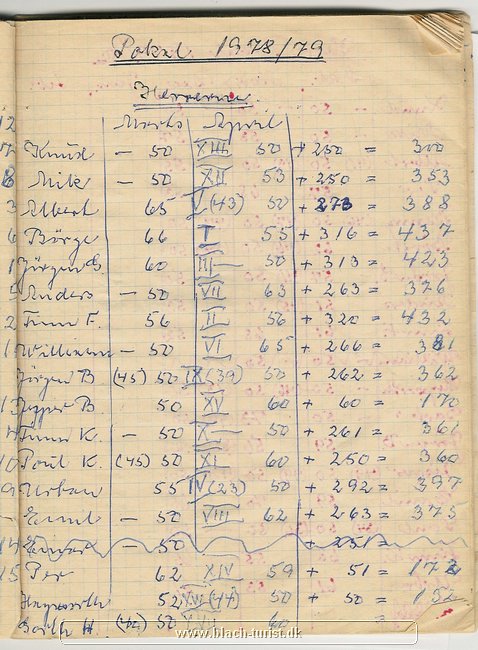 Pokal 1978/79
Herrerne
Marts April
12
7 Knud — 50 XIII 50 + 250 = 300
8 Mik — 50 XII 53 + 250 = 353
3 Albert 65 V (43) 50 + 273 = 388
6 Börge 66 I 55 + 316 = 437
1 Jörgen G. 60 III — 50 + 313 = 423
5 Anders — 50 VII 63 + 263 = 376
2 Finn F. 56 II 56 + 320 = 432
1 Willium — 50 VI 65 + 266 = 381
Jörgen B (45) 50 IX (39) 50 + 262 = 362
13 B. 50 XV 60 + 60 = 170
Finn K. — 50 X — 50 + 261 = 361
10 Poul K. (45) 50 XI 60 + 250 = 360
9 Urban 55 IV (23) 50 + 292 = 397
- Emil — 50 VIII 62 + 263 = 375
14 — 50 + 251 =
15 Per 62 XIV 59 + 51 = 172
52 (44) 50 + 50 = 152
H. 50 60 =
www.blach-turist.dk